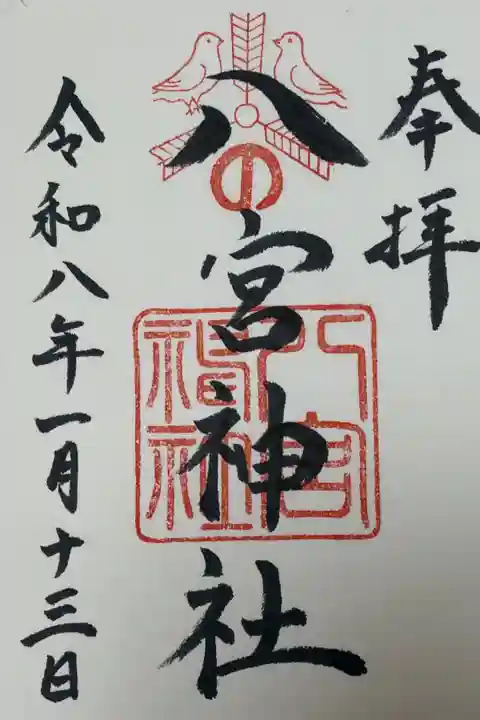 奉拝
八宮神社
の
八宮
神社
令和八年一月十三日